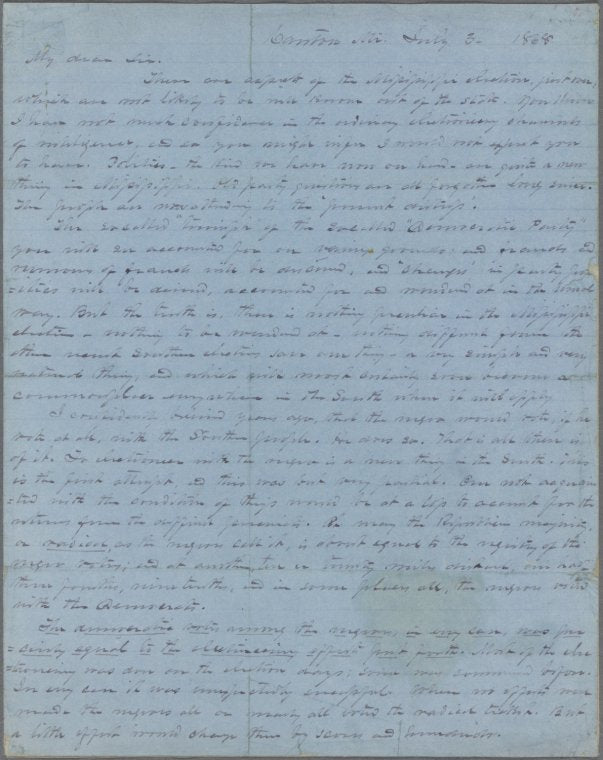 Canton Mi. July 3 - 1868
My dear Sir.
There are aspects of the Mississippi election, just over,
which are not likely to be well known out of the state. You know
I have not much confidence in the ordinary electioneering
of intelligence, and so you might infer I would not expect you
to have. Politics - the kind we have now on hand - are quite a new
thing in Mississippi. Old party questions are all forgotten long since.
The people are now attending to the "present distress".
The so called "triumph" of the so called "Democratic Party"
you will see accounted for on various grounds, and frauds and
rumours of frauds will be and "changes" in party
will be accounted for and wondered at in the usual
way. But the truth is, there is nothing peculiar in the Mississippi
election - nothing to be wondered at - nothing different from the
other recent Southern elections save one thing - a very simple and very
natural thing, and which will most certainly soon become a
commonplace everywhere in the South where it will apply.
I confidently years ago, that the negro would vote, if he
vote at all, with the Southern people. He does so. That is all there is
of it. To electioneer with the negro is a new thing in the South. This
is the first attempt and this was but very partial. One not acquain
=ted with the condition of things would be at a loss to account for the
returns from the different precincts. In many the Republican majority,
or radical, as the negroes call it, is about equal to the registry of the
negro votes; and at another, ten or twenty miles distant,
three fourths, nine tenths, and in some places, all, the negroes voted
with the Democrats.
The democratic votes among the negroes, in any case, was pre
=cisely equal to the electioneering effort put forth. Most of the elec
=tioneering was done on the election days; some was commenced before.
In any case it was unexpectedly successful. Where no efforts were
made the negroes all or nearly all voted the radical ticket. But
a little effort would change them by scores and hundreds.